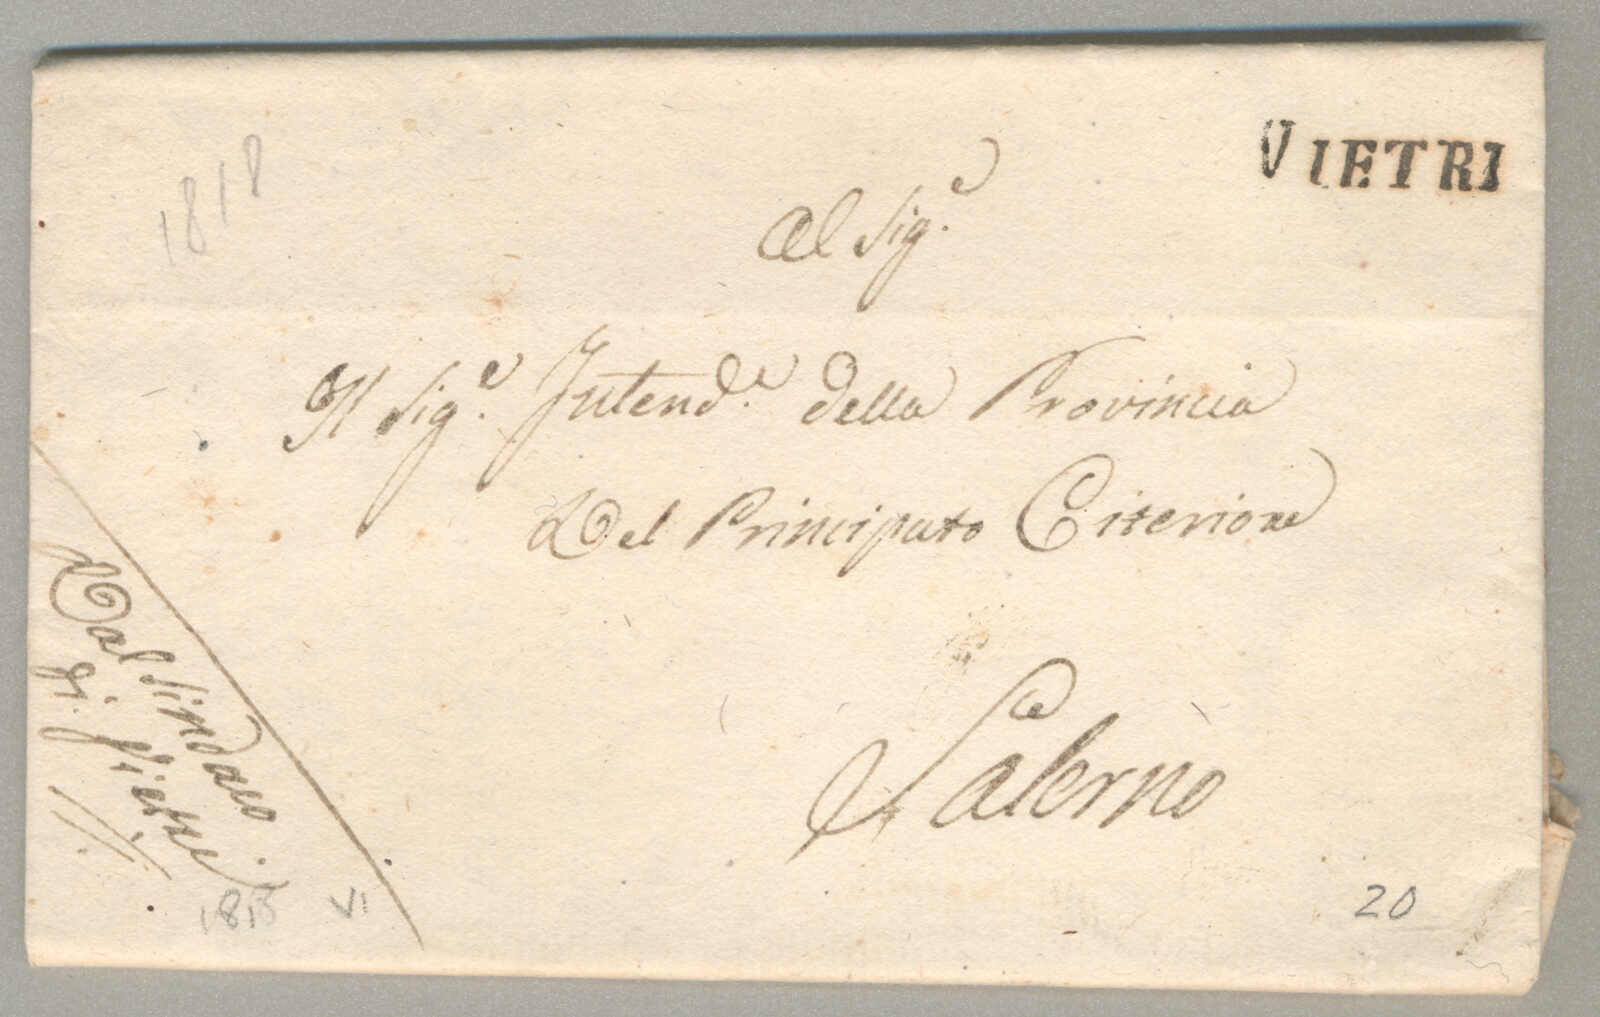 1818
VIETRI
Al Sig.e
Il Sig.e Intend.e della Provincia
Del Principato Citeriore
Salerno
Dal Sindaco
di Vietri
VI
20